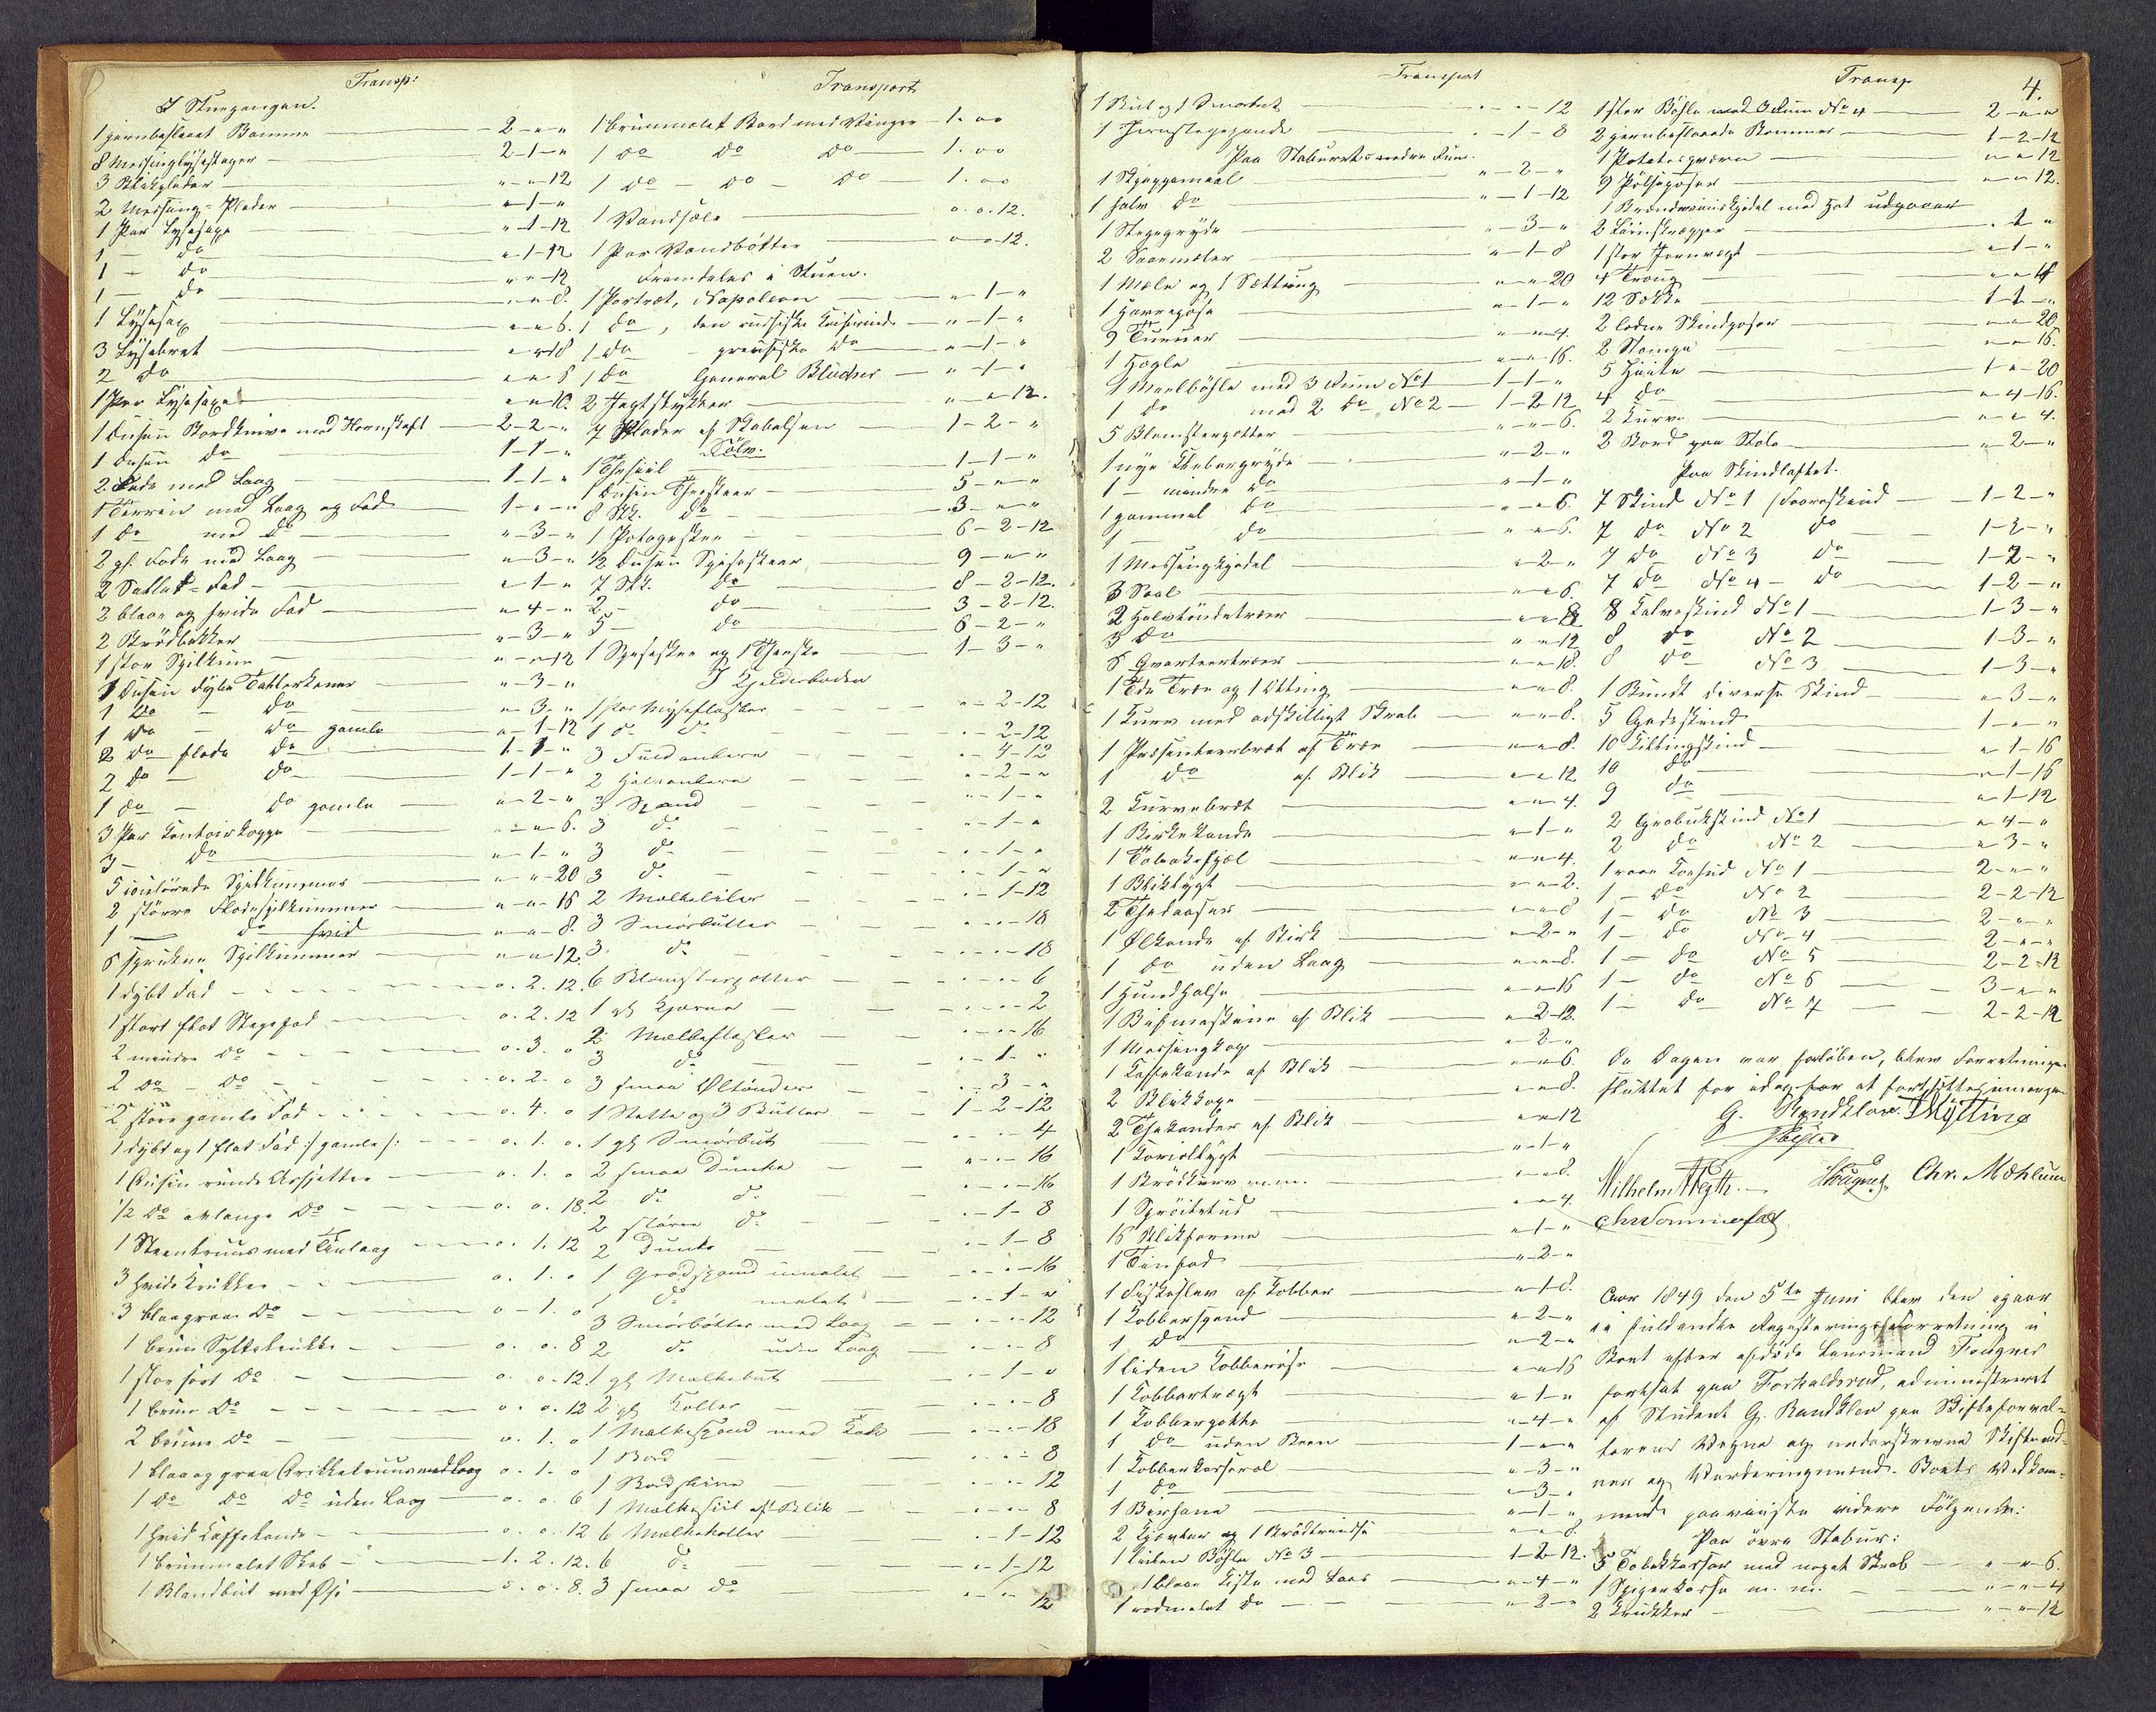 Transp:
I Stuegangen.
1 jernbeslaaet Bomme 2 - " - "
8 Messinglysestager 2 - 1 - "
3 Blikplader " - " - 12
2 Messing-Plader " - 1 - "
1 Par Lysesaxe " - 1 - 12
1 - do " - 1 - 12
1 - do " - " - 12
1 - do " - " - 8.
1 Lysesax " - " - 6.
3 Lysebret " - " - 18
2 do " - " - 8
1 Par Lysesaxe " - " - 16.
1 Dusin Bordknive med Hornskaft 2 - 2 - "
1 Dusin do 1 - 1 - "
2 Fade med Laag 1 - 1 - "
1 Terrin med Laag og Fad 1 - " - "
1 do med do " - 3 - "
2 gl. Fade med Laag " - 3 - "
2 Sallat-Fad " - 1 - "
2 blaae og hvide Fad " - 4 - "
2 Brödbakker " - 3 - "
1 stor Spilkum " - " - 12
1 Dusin dybe Tallerkener " - 3 - "
1 do - do " - 3 - "
1 do - do gamle " - 1 - 12
2 do flade do 1 - 1 - "
2 do - do 1 - 1 - "
1 do - do gamle " - 2 - "
3 Par Kontoirkoppe " - " - 6.
3 - do " - 1 - "
5 Spilkummer " - " - 20
2 större Flödespilkummer " - " - 16
1 - do hvid " - " - 8.
6 sprukne Spilkummer " - " - 12
1 dybt Fad o. 2. 12.
1 stort flat Stegefad o. 2. 12
2 mindre do o. 3. o
2 do - do o. 2. o
2 store gamle Fad o. 4. o
1 dybt og 1 flat Fad /: gamle :/ o. 1. o.
1 Dusin runde Assjetter o. 1. o
1/2 do aflange do o. o. 18.
1 Steenkruus med Tinlaag o. 1. 12
3 hvide Krukker o. 1. o
3 blaagraae do o - 1. o
1 brun Syltekrukke o. o. 8
1 stor sort do o. o. 12.
1 brun do o. o. 12
2 brune do o. 1. o
1 blaa og graa Drikkekruus med Laag o. 1. o
1 do do do uden Laag o. o. 6
1 hvid Kaffekande o. o. 12
1 brunmalet Skab 1. 2. 12.
1 Blandbut med Öse o. o. 8.
Transport
1 brunmalet Bord med Vinger 1. o o
1 do do do 1. o o
1 do - do - do 1. o o
1 Vandsele o. o. 12.
1 Par Vandbötter o - o - 12.
Fremdeles i Stuen.
1 Portræt, Napoleon " - 1 - "
1 do, den russiske Keiserinde " - 1 - "
1 do - preusiske do " - 1 - "
1 do General Blücher " - 1 - "
2 Jagtstykker " - " - 12.
7 Plader af Skabelsen 1 - 2 - "
Sölv.
1 Thesiil 1 - 1 - "
1 Dusin Theskeer 5 - " - "
8 Stk. do 3 - " - "
1 Potageskee 6 - 2 - 12
1/2 Dusin Spiseskeer 9 - " - "
7 Stk. do 8 - 2 - 12.
2 - do 3 - 2 - 12.
5 - do 6 - 2 - "
1 Spiseskee og 1 Theske 1 - 3 - "
I Kjelderboden
1 Par Myseflasker " - 2 - 12
1 do do " - 2 - 12
3 Fuldankere " - 4 - 12
2 Halvankere " - 2 - "
3 Spand " - 1 - "
3 do " - 1 - "
3 do " - 1 - "
3 do " - 1 - "
2 Melkebiler " - 1 - 12
3 Smörbutter " - " - 18
3 do " - " - 18
6 Blomsterpotter " - " - 6
1 gl. Kjerne " - " - 2
2 Melkeflasker " - " - 16
3 do " - 1 - "
3 smaa Öltönder " - 3 - "
1 Stette og 3 Butter 1 - 2 - 12
1 gl. Smörbut " - " - 4
2 smaa Dunke " - " - 16
2 do do " - " - 16
2 större do " - 1 - 8
2 Dunke " - 1 - 8
1 Grödspand umalet " - " - 16
1 do malet " - 1 - "
3 Smörbötter med Laag " - " - 12
2 do uden Laag " - " - 8
1 gl. Melkebut " - 1 - "
2 gl. Koller " - " - 8
1 Melkespand med Lok " - " - 18
1 Bord " - " - 8
1 Bordskive " - " - 12
1 Melkesiil af Blik " - " - 8
6 Melkekoller " - 1 - 12
6 do " - 1 - 12
3 smaa do " - " - 12
Transport
1 " - " - 12
1 " - 1 - 8
Paa Staburets nedre Rum.
1 Skjeppemaal " - 2 - "
1 halv do " - 1 - 12
1 Stegegryde " - 3 - "
2 " - 1 - 8
1 Mele og 1 Sætting " - " - 20
1 Havrepose " - 1 - "
9 " - " - 4.
1 Hegle " - " - 16.
1 Meelböhle med 3 Rum No 1 1 - 1 - "
1 do med 2 do No 2 1 - 2 - 12
5 Blomsterpotter " - " - 6.
1 nye Klebergryde " - 2 - "
1 - mindre do " - 1 - "
1 gammel do " - " - 6.
1 - do " - " - 6.
1 Messingkjedel " - 2 - "
3 " - " - 6.
2 Halvtöndetræer " - " - 8
3 do " - " - 12
6 Qvarteertræer " - " - 18.
1 Tde Træe og 1 Otting " - " - 8.
1 Kurv med adskilligt Skrab " - " - 8.
1 Præsenteerbræt af Træe " - " - 8.
1 do af Blik " - " - 12
2 Kurvebræt " - " - 4.
1 Birkekande " - 1 - "
1 Tobaksfjæl " - " - 4.
1 Bliklygt " - " - 2.
2 Thedaaser " - " - 8
1 Ølkande af Birk " - 2 - "
1 do uden Laag " - " - 8.
1 Hundhalse " - " - 16
1 Bifmaskine af Blik " - 2 - 12.
1 Messingkop " - 2 -
1 Kaffekande af Blik " - " - 6
2 Blikkopper " - " - 8.
2 Thekander af Blik " - " - 12
1 Karriollygt " - 1 - "
1 Brödkurv m.m. " - " - 8.
1 " - " - 4.
16 Blikforme " - 1 - "
1 Tinfad " - 2 - "
1 Fiskeslev af Kobber " - 1 - 8.
1 Kobberspand " - 2 - "
1 do " - 2 - "
1 liden Kobberöse " - " - 16
1 Kobbertragt " - 1 - "
1 Kobberpotte " - 4 - "
1 do uden Been 1 - " - "
1 Kobberkasserol " - 3 - "
1 do " - 3 - "
1 " - 1 - "
2 og 1 Brödtrindse " - " - 8.
1 liden Böhle No 3 1 - 2 - 12.
1 blaae Kiste med Laas " - 4 - "
1 rödmalet do " - 2 - "
Transp 4.
1 stor Böhle med 3 Rum No 4 2 - " - "
2 jernbeslaaede Bommer 1 - 2 - 12
1 Potetesqværn " - " - 12
9 Pölseposer " - " - 12.
1 Brændeviinskjedel med Hat udgaaer
2 " - 1 - "
1 stor Jernvegt " - 1 - "
4 Troug " - " - 18
12 Sække 1 - 1 - "
2 lodne Skindposer " - " - 20
2 Stampe " - " - 16.
5 1 - " - 20
4 do " - 4 - 16.
2 Kurve " - " - 4.
2 Bord paa Stole " - 2 - "
Paa Skindloftet.
7 Skind No 1 /Faareskind 1 - 2 - "
7 do No 2 do 1 - 2 - "
7 do No 3 do 1 - 2 - "
7 do No 4 - do 1 - 2 - "
8 Kalveskind No 1 1 - 3 - "
8 do No 2 1 - 3 - "
8 do No 3 1 - 3 - "
1 Bundt diverse Skind " - 3 - "
5 Gjedeskind 1 - " - "
10 Killingskind " - 1 - 16
10 do " - 1 - 16
9 do " - 1 - 12
2 Gjedbukskind No 1 " - 4 - "
2 do No 2 " - 3 - "
1 raae Koehud No 1 2 - " - "
1 - do No 2 2 - 2 - 12
1 - do No 3 2 - " - "
1 - do No 4 2 - " - "
1 - do No 5 2 - 2 - 12
1 - do No 6 3 - " - "
1 - do No 7 2 - 2 - 12
Da Dagen var forlöben, blev Forretningen
sluttet for idag for at fortsættes imorgen
G. Randklev. Thÿtting
Wilhelm Hegth. Fougner Chr. Mæhlum
Chr Sommerfelt
Aar 1849 den 5te Juni blev den igaar
Registeringsforretning i
Boet efter afdöde Lensmand Fougner
fortsat paa Forkalsrud, administreret
af Student G. Randklev paa Skifteforval-
terens Vegne og underskrevne Skiftevid-
ner og Vurderingsmænd. Boets Vedkom-
mende paaviiste videre Fölgende:
Paa övre Stabur:
5 Tobakkasser med noget Skrab " - " - 6.
1 Spigerkasse m. m. " - " - 4
2 Krukker " - " - 12